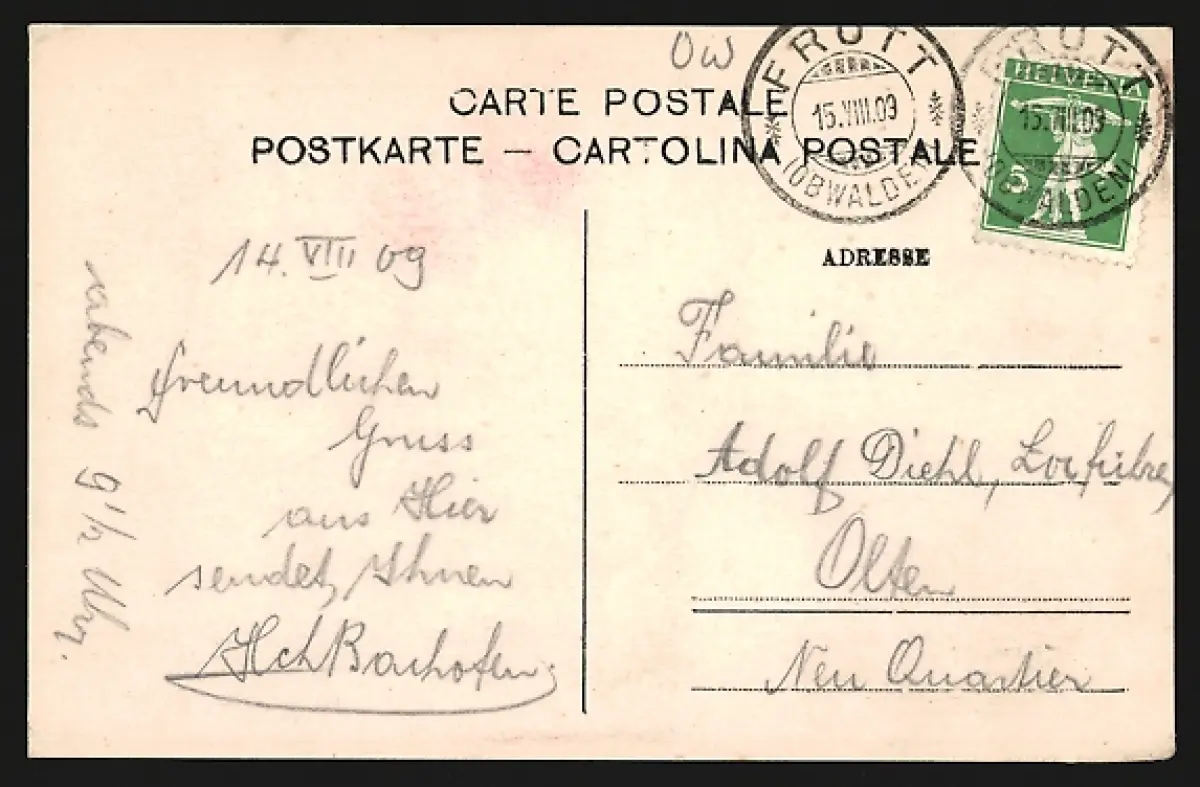 OW
CARTE POSTALE
POSTKARTE — CARTOLINA POSTALE
FRUTT
15.VIII.09
(OBWALDEN)
FRUTT
15.VIII.09
(OBWALDEN)
HELVETIA
5
14. VIII 09
Freundlichen
Gruss
aus Hier
sendet Ihnen
Hch Bachofen
abends 9 1/2 Uhr.
ADRESSE
Familie
Adolf Diehl, Lokführer
Olten
Neu Quartier